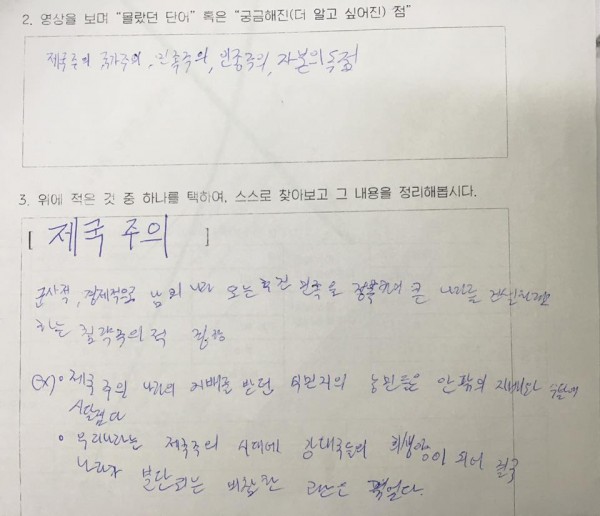 2. 영상을 보며 "몰랐던 단어" 혹은 "궁금해진(더 알고 싶어진) 점"
제국주의 국가주의, 민족주의, 인종주의, 자본의 독점
3. 위에 적은 것 중 하나를 택하여, 스스로 찾아보고 그 내용을 정리해봅시다.
[ 제국 주의 ]
군사적, 경제적으로 남의 나라 또는 민족을 정복하여 큰 나라를 건설하려
하는 침략주의적 경향
(ex) • 제국 주의 나라의 지배를 받던 식민지의 농민들은 안팎의 수탈에
시달렸다
• 우리나라는 제국주의 시대에 강대국들의 희생양이 되어 결국
나라가 분단되는 비참한 고난을 겪었다.